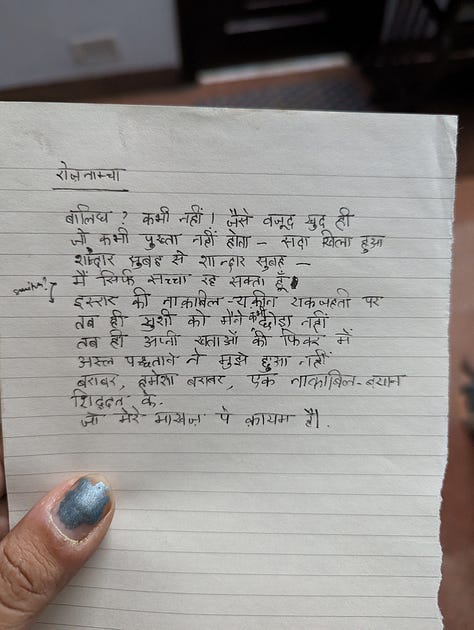 रोज़नाम्चा
बालिध ? कभी नहीं । जैसे वजूद खुद ही
जो कभी पुख़्ता नहीं होता – सदा खिला हुआ
शांदार सुबह से शान्दार सुबह –
मैं सिर्फ सच्चा रह सकता हूँ
इसरार की नाक़ाबिल-यक़ीन यकजहती पर
तब ही खुशी को मैंने कभी छोड़ा नहीं
तब ही अपनी खताओं की फिकर में
अस्ल पछताने ने मुझे छुआ नहीं
बराबर, हमेशा बराबर, एक नाक़ाबिल-बयान
शिद्दत के.
जो मेरे माखज़ पे क़ायम है।